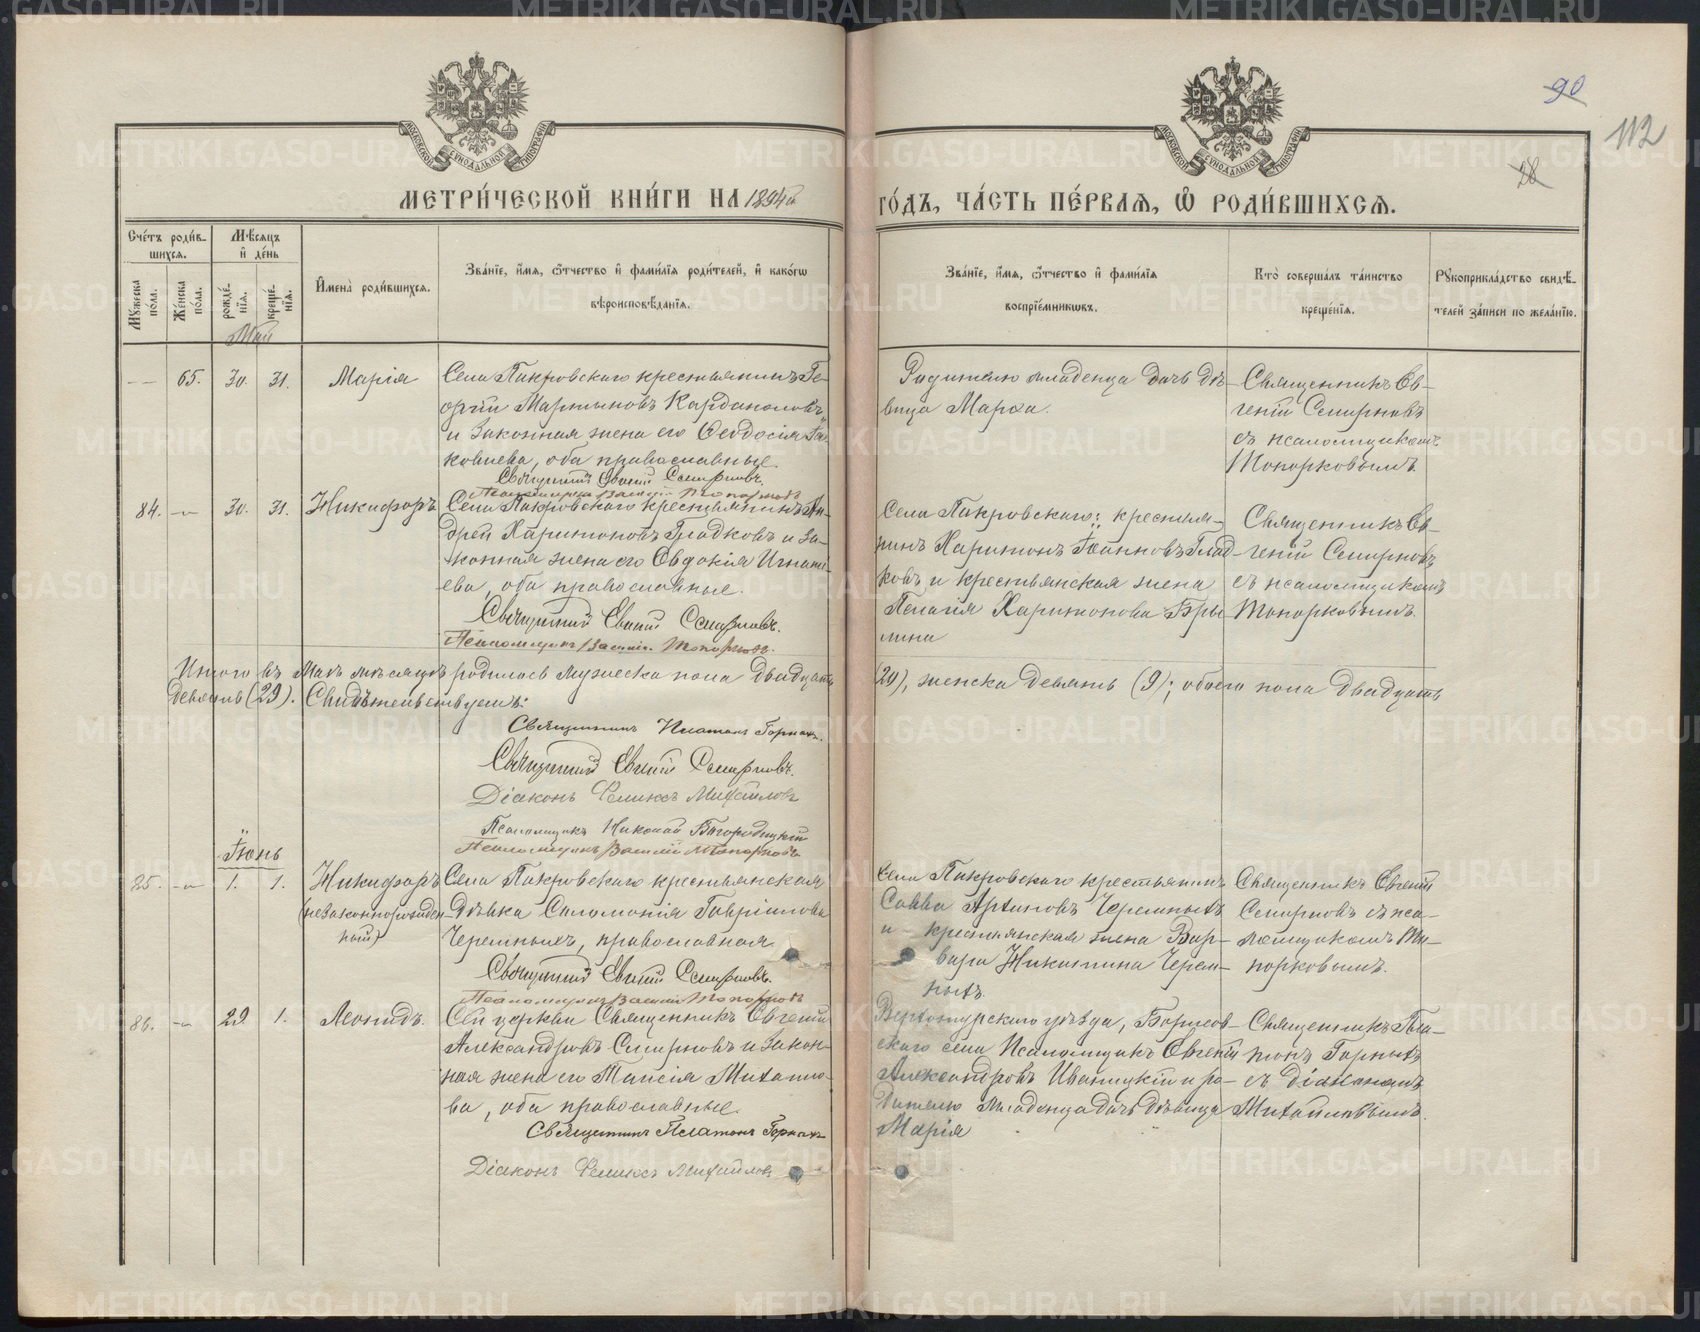 МЕТРИ́ЧЕСКОЙ КНИ́ГИ НА 1894й
ГО́ДЪ, ЧА́СТЬ ПЕ́РВАЯ, Ѡ РОДИ́ВШИХСЯ.
90
112
28
Сче́тъ роди́в-
шихся.
Мѣ́сяцъ
и҆ де́нь
Мꙋ́жеска по́ла.
Же́нска по́ла.
рожде́-
нїѧ.
креще́-
нїѧ.
И҆мена̀ роди́вшихся.
Зва́нїе, и҆́мѧ, ѻ҆́тчество и҆ фами́лїѧ роди́телей, и҆ како́гѡ
вѣроисповѣ́данїѧ.
Зва́нїе, и҆́мѧ, ѻ҆́тчество и҆ фами́лїѧ
воспрїе́мникѡвъ.
Кто̀ соверша́лъ та́инство
креще́нїѧ.
Рꙋкоприкла́дство свидѣ́-
телей за́писи по жела́нїю.
Май
— 65. 30. 31. Марія
Села Покровскаго крестьянинъ Ге-
оргій Мартыновъ Кардаполовъ
и законная жена его Ѳеодосія Іа-
ковлева, оба православные.
Священникъ Евгеній Смирновъ.
Псаломщикъ Василій Топорковъ
Родителю младенца дочь дѣ-
вица Марѳа.
Священникъ Ев-
геній Смирновъ
съ псаломщикомъ
Топорковымъ.
84. —"— 30. 31. Никифоръ
Села Покровскаго крестьянинъ Ан-
дрей Харитоновъ Гладковъ и за-
конная жена его Евдокія Игнать-
ева, оба православные.
Священникъ Евгеній Смирновъ.
Псаломщикъ Василій Топорковъ.
Села Покровскаго: крестья-
нинъ Харитонъ Іоанновъ Глад-
ковъ и крестьянская жена
Пелагія Харитонова Бры
лина
Священникъ Ев-
геній Смирновъ
съ псаломщикомъ
Топорковымъ.
Итого въ Маѣ мѣсяцѣ родилось мужеска пола двадцать
(20), женска девять (9); обоего пола двадцать
девять (29). Свидѣтельствуемъ:
Священникъ Платонъ Горныхъ.
Священникъ Евгеній Смирновъ.
Діаконъ Феликсъ Михайловъ
Псаломщикъ Николай Богородицкій
Псаломщикъ Василій Топорковъ
Іюнь
85. —"— 1. 1. Никифоръ
(незаконнорожден
ный)
Села Покровскаго крестьянская
дѣвка Соломонія Гавріилова
Черемныхъ, православная.
Священникъ Евгеній Смирновъ.
Псаломщикъ Василій Топорковъ
Села Покровскаго крестьянинъ
Савва Черемныхъ
и крестьянская жена Вар-
вара Никитина Черем-
ныхъ.
Священникъ Евгеній
Смирновъ съ пса-
ломщикомъ То-
порковымъ.
86. —"— 29. 1. Леонидъ.
Сей церкви Священникъ Евгеній
Александровъ Смирновъ и закон-
ная жена его Таисія Михаило-
ва, оба православные.
Священникъ Платонъ Горныхъ
Діаконъ Феликсъ Михайловъ
Верхотурскаго уѣзда, Борисов-
скаго села Псаломщикъ Евгеній
Александровъ Иваницкій и ро-
дителю младенца дочь дѣвица
Марія
Священникъ Пла-
тонъ Горныхъ
съ діакономъ
Михайловымъ.
METRIKI.GASO-URAL.RU